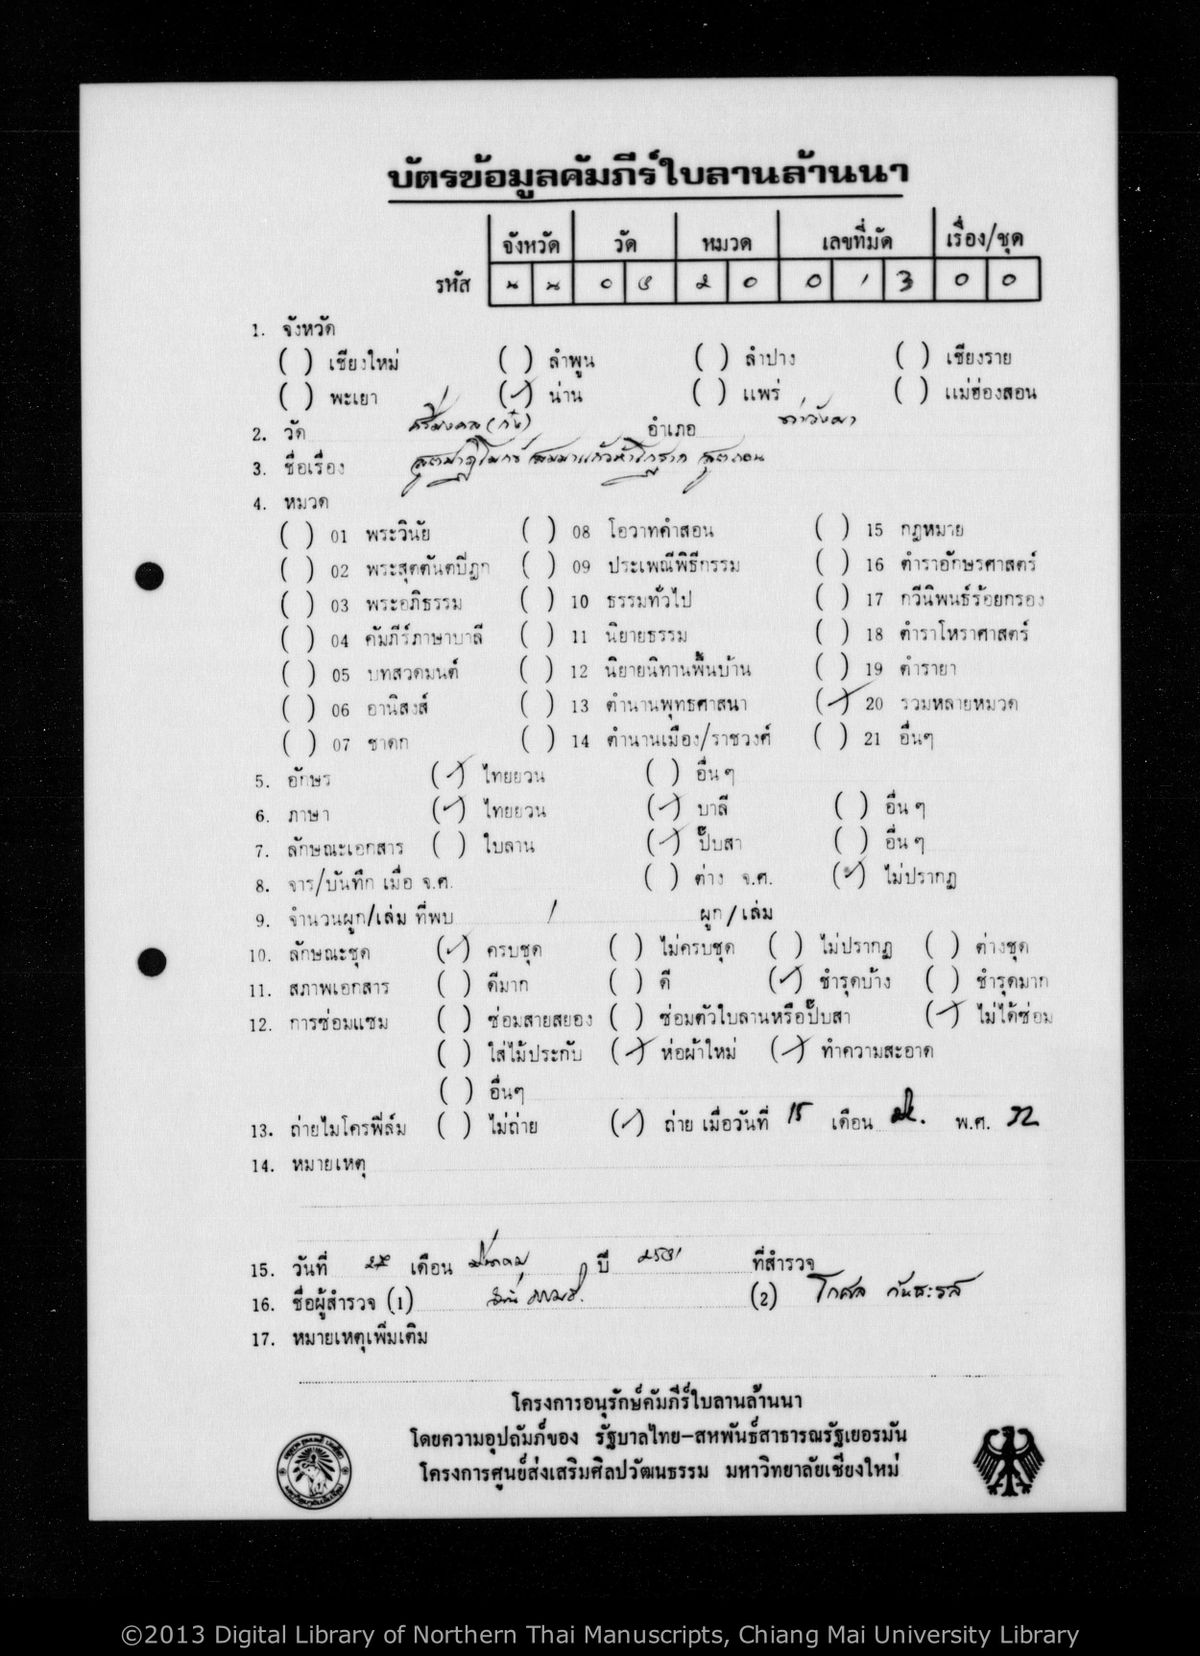 บัตรข้อมูลคัมภีร์ใบลานล้านนา
จังหวัด วัด หมวด เลขที่มัด เรื่อง/ชุด
รหัส น น 0 2 0 0 1 3 0 0
1. จังหวัด
( ) เชียงใหม่ ( ) ลำพูน ( ) ลำปาง ( ) เชียงราย
( ) พะเยา (✓) น่าน ( ) แพร่ ( ) แม่ฮ่องสอน
2. วัด ศรีมงคล (ก๋ง) อำเภอ ท่าวังผา
3. ชื่อเรื่อง
4. หมวด
( ) 01 พระวินัย ( ) 08 โอวาทคำสอน ( ) 15 กฎหมาย
( ) 02 พระสุตตันตปิฎก ( ) 09 ประเพณีพิธีกรรม ( ) 16 ตำราอักษรศาสตร์
( ) 03 พระอภิธรรม ( ) 10 ธรรมทั่วไป ( ) 17 กวีนิพนธ์ร้อยกรอง
( ) 04 คัมภีร์ภาษาบาลี ( ) 11 นิยายธรรม ( ) 18 ตำราโหราศาสตร์
( ) 05 บทสวดมนต์ ( ) 12 นิยายนิทานพื้นบ้าน ( ) 19 ตำรายา
( ) 06 อานิสงส์ ( ) 13 ตำนานพุทธศาสนา (✓) 20 รวมหลายหมวด
( ) 07 ชาดก ( ) 14 ตำนานเมือง/ราชวงศ์ ( ) 21 อื่นๆ
5. อักษร (✓) ไทยยวน ( ) อื่น ๆ
6. ภาษา (✓) ไทยยวน (✓) บาลี ( ) อื่น ๆ
7. ลักษณะเอกสาร ( ) ใบลาน (✓) ปั๊บสา ( ) อื่น ๆ
8. จาร/บันทึก เมื่อ จ.ศ. ( ) ต่าง จ.ศ. (✓) ไม่ปรากฏ
9. จำนวนผูก/เล่ม ที่พบ 1 ผูก/เล่ม
10. ลักษณะชุด (✓) ครบชุด ( ) ไม่ครบชุด ( ) ไม่ปรากฏ ( ) ต่างชุด
11. สภาพเอกสาร ( ) ดีมาก ( ) ดี (✓) ชำรุดบ้าง ( ) ชำรุดมาก
12. การซ่อมแซม ( ) ซ่อมสายสยอง ( ) ซ่อมตัวใบลานหรือปั๊บสา (✓) ไม่ได้ซ่อม
( ) ใส่ไม้ประกับ (✓) ห่อผ้าใหม่ (✓) ทำความสะอาด
( ) อื่นๆ
13. ถ่ายไมโครฟิล์ม ( ) ไม่ถ่าย (✓) ถ่าย เมื่อวันที่ 15 เดือน พ.ศ. 32
14. หมายเหตุ
15. วันที่ เดือน ปี ๒๕๓๑ ที่สำรวจ
16. ชื่อผู้สำรวจ (1) (2) โกศล กันธะรส
17. หมายเหตุเพิ่มเติม
โครงการอนุรักษ์คัมภีร์ใบลานล้านนา
โดยความอุปถัมภ์ของ รัฐบาลไทย-สหพันธ์สาธารณรัฐเยอรมัน
โครงการศูนย์ส่งเสริมศิลปวัฒนธรรม มหาวิทยาลัยเชียงใหม่
©2013 Digital Library of Northern Thai Manuscripts, Chiang Mai University Library